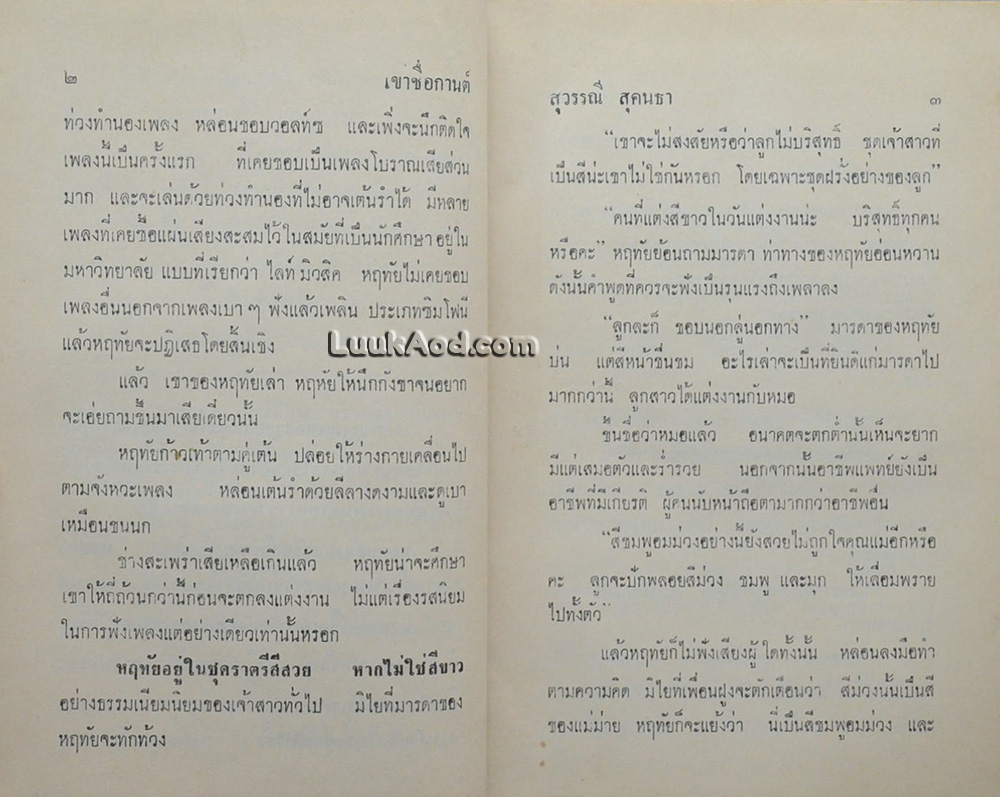 ๒ เขาชื่อกานต์
ท่วงทำนองเพลง หล่อนชอบวอลท์ซ และเพิ่งจะนึกติดใจ
เพลงนี้เป็นครั้งแรก ที่เคยชอบเป็นเพลงโบราณเสียส่วน
มาก และจะเล่นด้วยท่วงทำนองที่ไม่อาจเต้นรำได้ มีหลาย
เพลงที่เคยซื้อแผ่นเสียงสะสมไว้ในสมัยที่เป็นนักศึกษาอยู่ใน
มหาวิทยาลัย แบบที่เรียกว่า ไลท์ มิวสิค หฤทัยไม่เคยชอบ
เพลงอื่นนอกจากเพลงเบา ๆ ฟังแล้วเพลิน ประเภทซิมโฟนี
แล้วหฤทัยจะปฏิเสธโดยสิ้นเชิง
แล้ว เขาของหฤทัยเล่า หฤทัยให้นึกกังขาจนอยาก
จะเอ่ยถามขึ้นมาเสียเดี๋ยวนั้น
หฤทัยก้าวเท้าตามคู่เต้น ปล่อยให้ร่างกายเคลื่อนไป
ตามจังหวะเพลง หล่อนเต้นรำด้วยลีลางดงามและดูเบา
เหมือนขนนก
ช่างสะเพร่าเสียเหลือเกินแล้ว หฤทัยน่าจะศึกษา
เขาให้ถี่ถ้วนกว่านี้ก่อนจะตกลงแต่งงาน ไม่แต่เรื่องรสนิยม
ในการฟังเพลงแต่อย่างเดียวเท่านั้นหรอก
หฤทัยอยู่ในชุดราตรีสีสวย หากไม่ใช่สีขาว
อย่างธรรมเนียมนิยมของเจ้าสาวทั่วไป มิไยที่มารดาของ
หฤทัยจะทักท้วง
สุวรรณี สุคนธา ๓
“เขาจะไม่สงสัยหรือว่าลูกไม่บริสุทธิ์ ชุดเจ้าสาวที่
เป็นสีน่ะเขาไม่ใช่กันหรอก โดยเฉพาะชุดฝรั่งอย่างของลูก”
“คนที่แต่งสีขาวในวันแต่งงานน่ะ บริสุทธิ์ทุกคน
หรือคะ” หฤทัยย้อนถามมารดา ท่าทางของหฤทัยอ่อนหวาน
ดังนั้นคำพูดที่ควรจะฟังเป็นรุนแรงถึงเพลาลง
“ลูกละก็ ชอบนอกลู่นอกทาง” มารดาของหฤทัย
บ่น แต่สีหน้าชื่นชม อะไรเล่าจะเป็นที่ยินดีแก่มารดาไป
มากกว่านี้ ลูกสาวได้แต่งงานกับหมอ
ขึ้นชื่อว่าหมอแล้ว อนาคตจะตกต่ำนั้นเห็นจะยาก
มีแต่เสมอตัวและร่ำรวย นอกจากนั้นอาชีพแพทย์ยังเป็น
อาชีพที่มีเกียรติ ผู้คนนับหน้าถือตามากกว่าอาชีพอื่น
“สีชมพูอมม่วงอย่างนี้ยังสวยไม่ถูกใจคุณแม่อีกหรือ
คะ ลูกจะปักพลอยสีม่วง ชมพู และมุก ให้เลื่อมพราย
ไปทั้งตัว”
แล้วหฤทัยก็ไม่ฟังเสียงผู้ใดทั้งนั้น หล่อนลงมือทำ
ตามความคิด มิไยที่เพื่อนฝูงจะตักเตือนว่า สีม่วงนั้นเป็นสี
ของแม่ม่าย หฤทัยก็จะแย้งว่า นี่เป็นสีชมพูอมม่วง และ
LuukAod.com